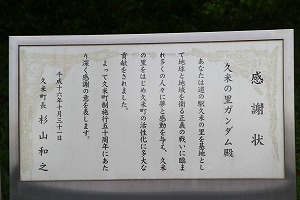 感謝状
久米の里ガンダム殿
あなたは道の駅久米の里を基地とし
て地球と地域を衛る正義の戦いに臨ま
れ多くの人々に夢と感動を与え、久米
の里をはじめ久米町の活性化に多大な
貢献をされました。
よって久米町制施行五十周年にあた
り深く感謝の意を表します。
平成十六年十月三十一日
久米町長 杉山和之